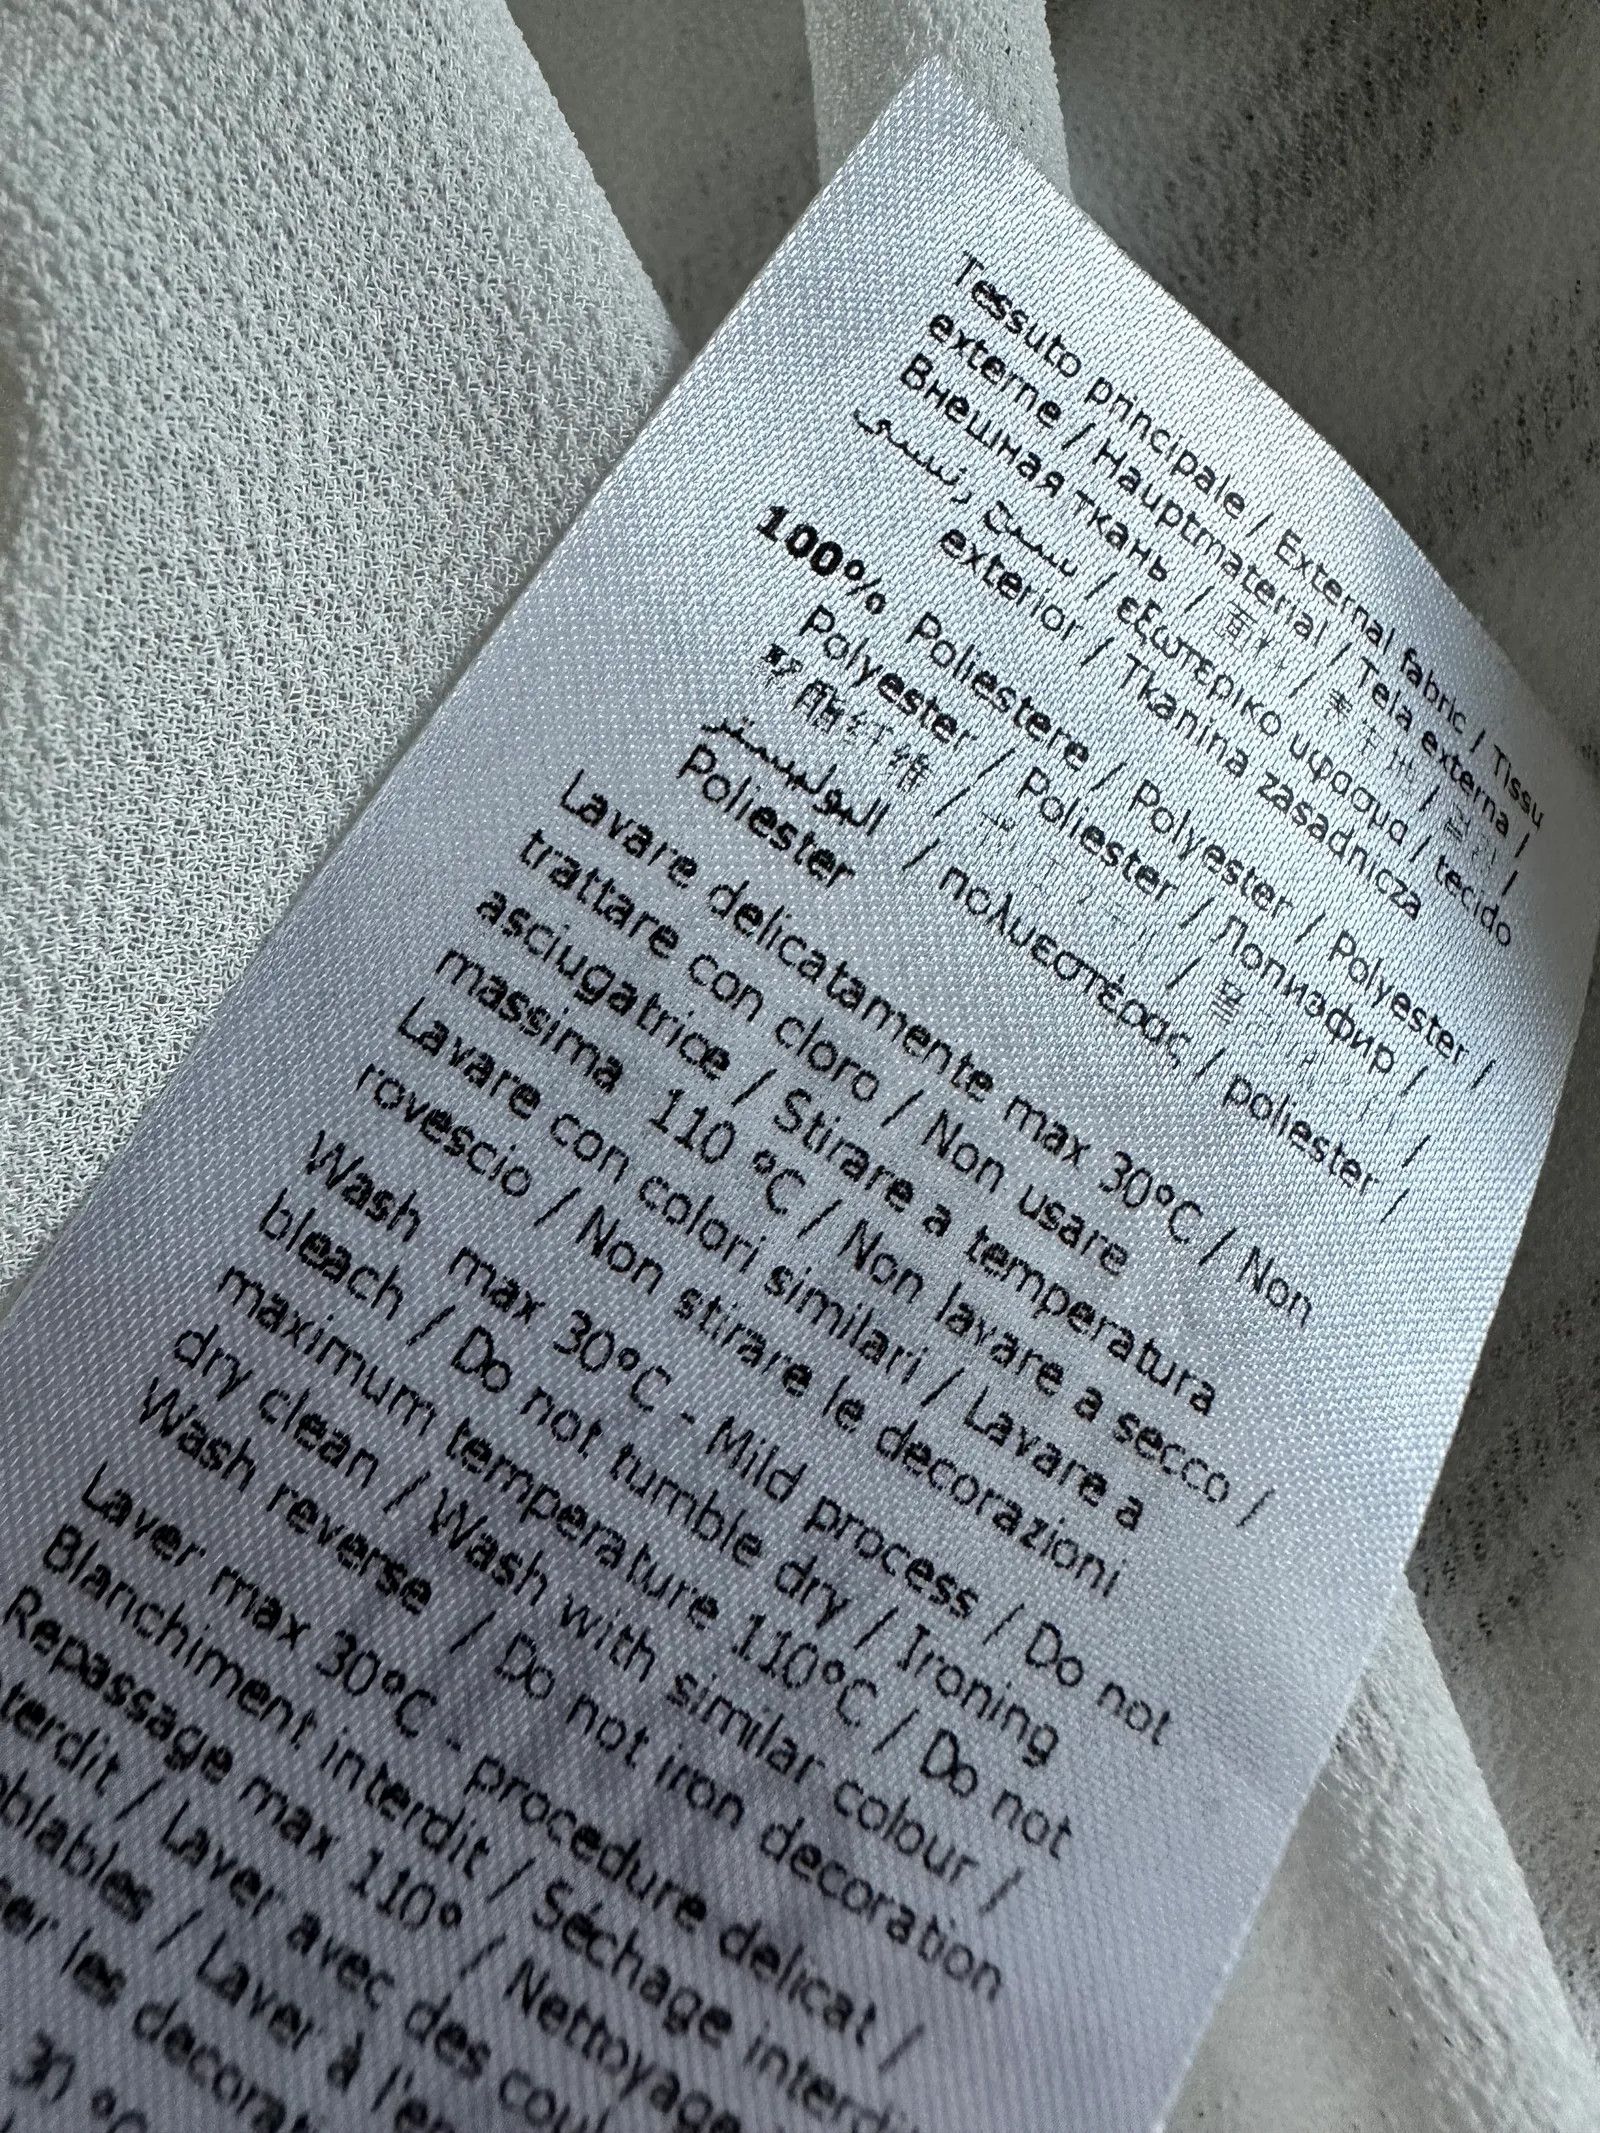 Tessuto principale / External fabric / Tissu
externe / Hauptmaterial / Tela externa /
Внешная ткань / 面料 / 表生地 / 겉감 /
نسيج رئيسي / εξωτερικο υφασμα / tecido
exterior / Tkanina zasadnicza
100% Poliestere / Polyester / Polyester /
Polyester / Poliester / Полиэфир /
聚酯纤维 / /
البوليستر / πολυεστέρας / poliester /
Poliester
Lavare delicatamente max 30°C / Non
trattare con cloro / Non usare
asciugatrice / Stirare a temperatura
massima 110 °C / Non lavare a secco /
Lavare con colori similari / Lavare a
rovescio / Non stirare le decorazioni
Wash max 30°C - Mild process / Do not
bleach / Do not tumble dry / Ironing
maximum temperature 110°C / Do not
dry clean / Wash with similar colour /
Wash reverse / Do not iron decoration
Laver max 30°C - procedure delicat /
Blanchiment interdit / Séchage
Repassage max 110° / Nettoyage
/ Laver avec des
/ Laver à
les
30 °C